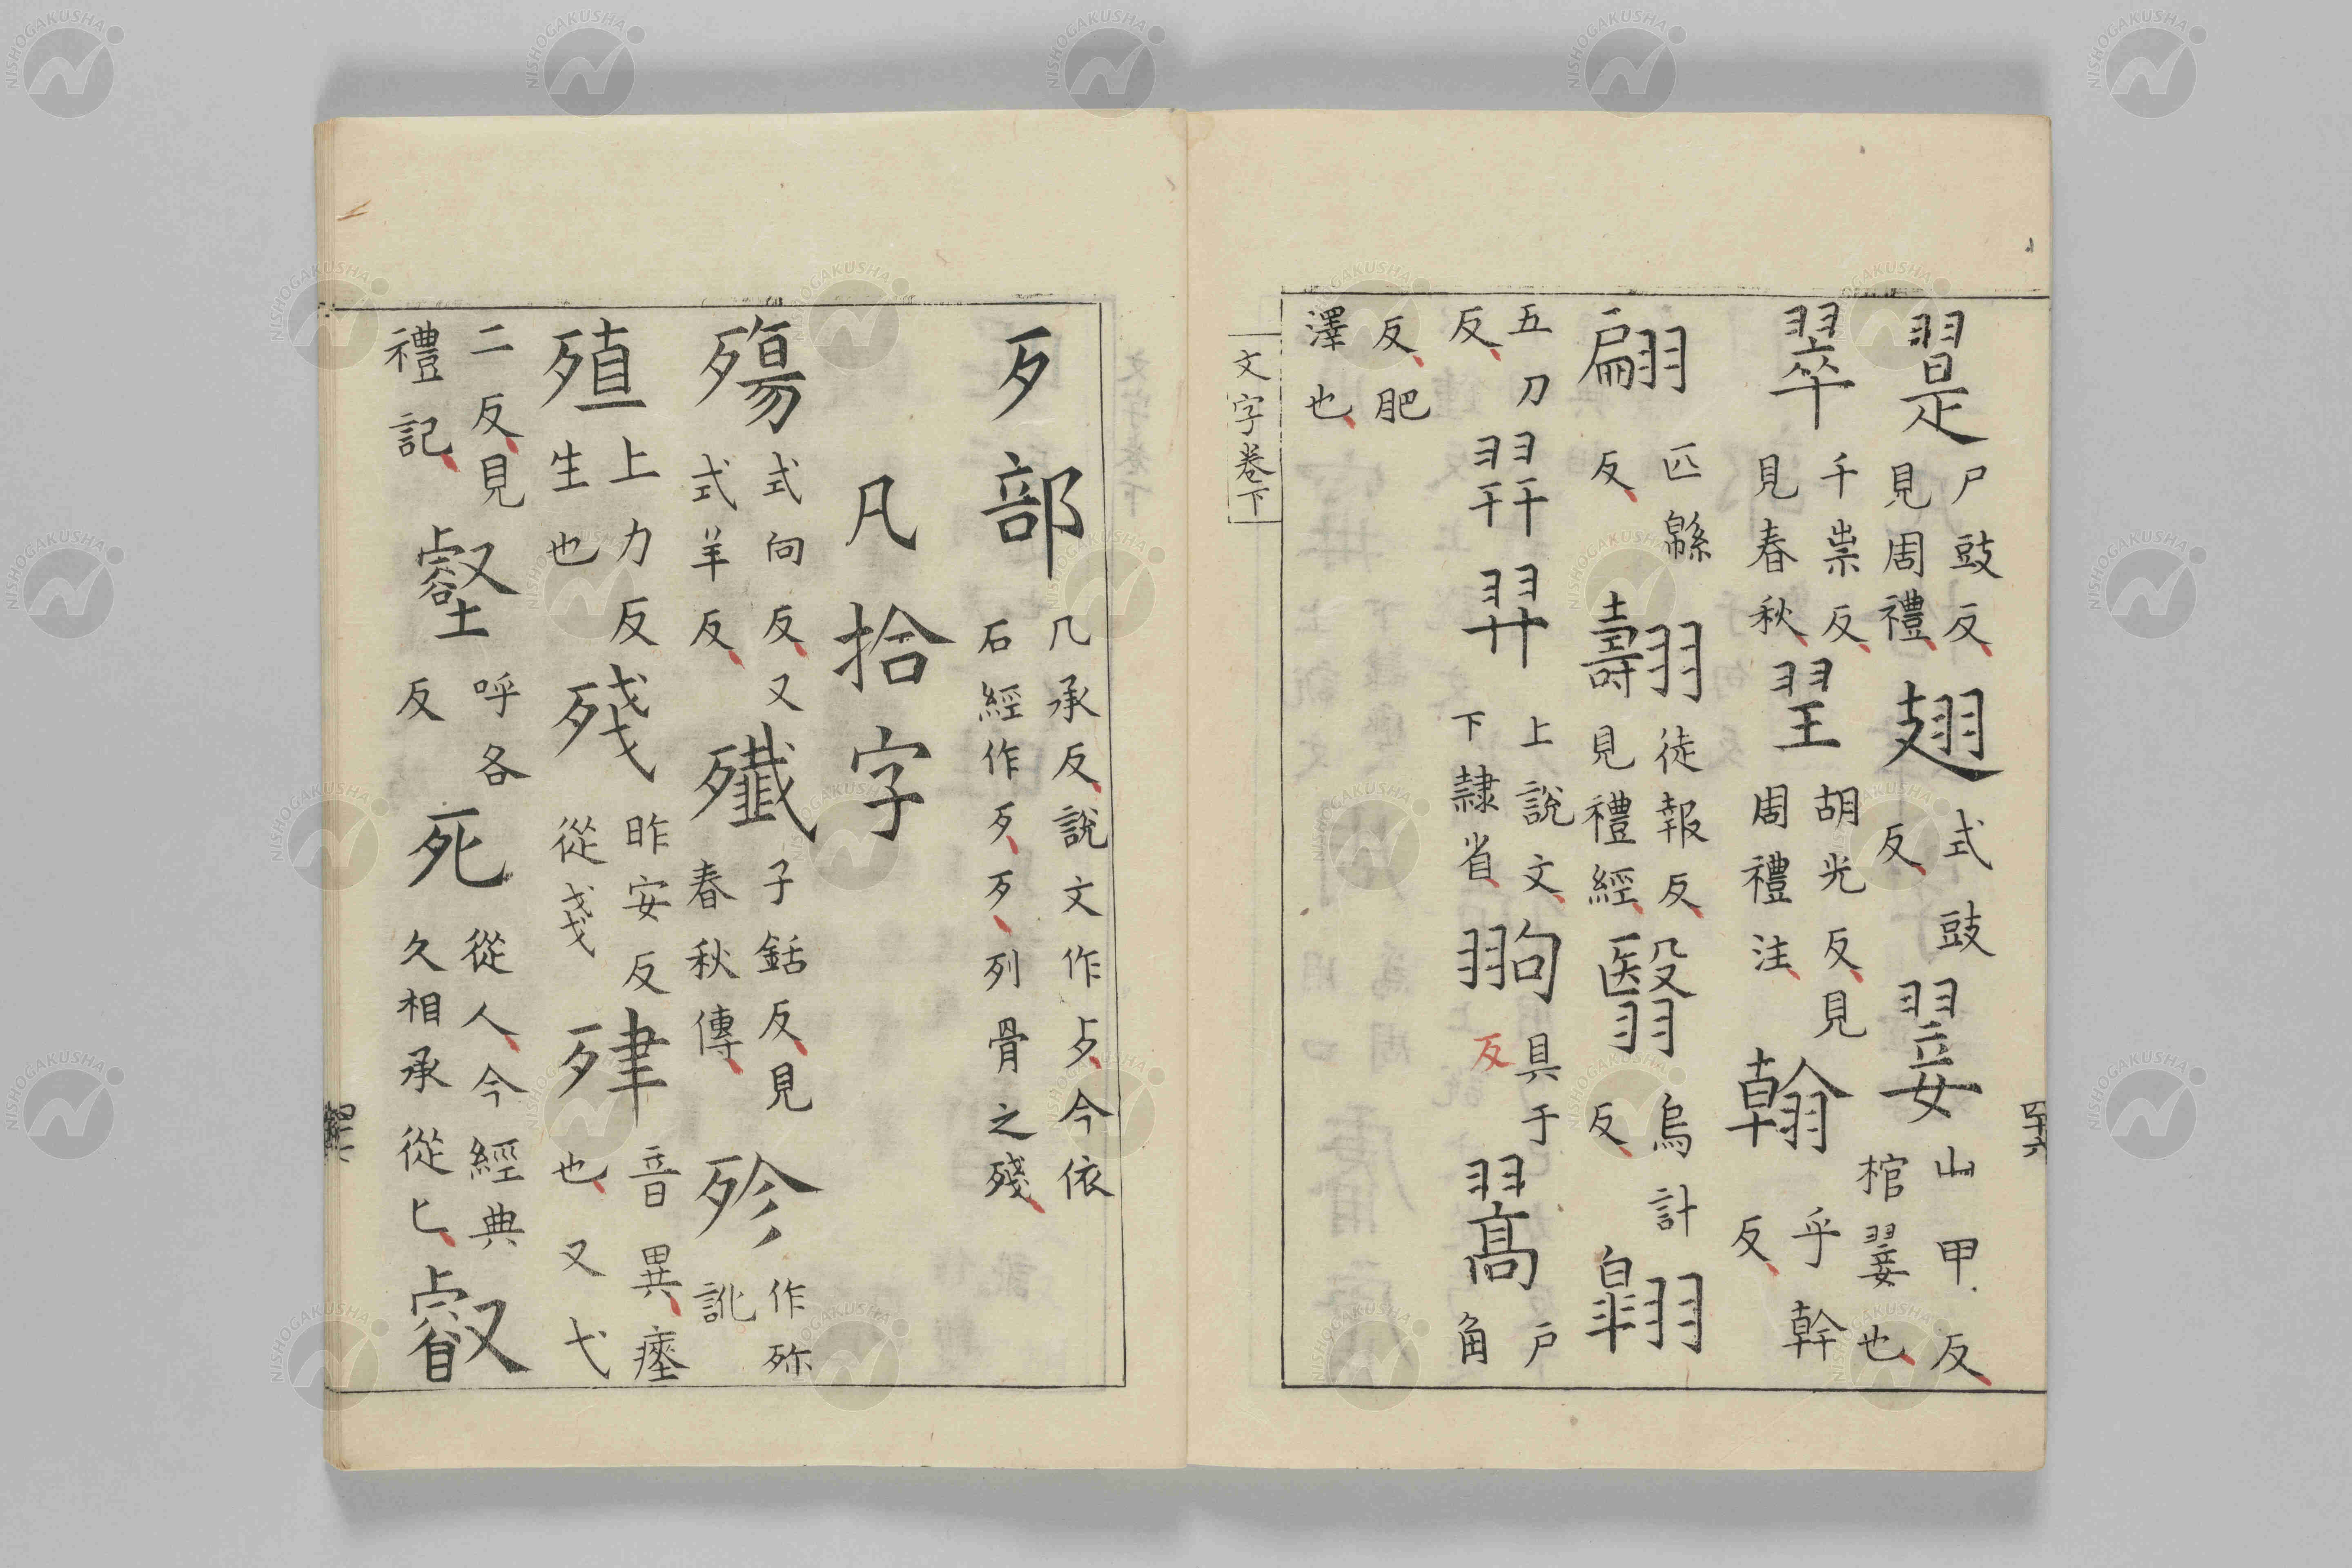 翨尸豉反見周禮翅式豉反翣山甲反棺翣也
翠千祟反見春秋䍿胡光反見周禮注翰乎幹反
翩匹緜反翿徒報反見禮經翳烏計反翱
五刀反羿上說文下隸省翑具于反翯戶角
反肥澤也
文字卷下
歹部几承反說文作歺今依石經作歹歹列骨之殘
凡拾字
殤式向反又式羊反殲子銛反見春秋傳殄作殄訛
殖上力反生也殘昨安反從戔肂音異瘞也又弋
二反見禮記壑呼各反死從人今經典久相承從匕叡